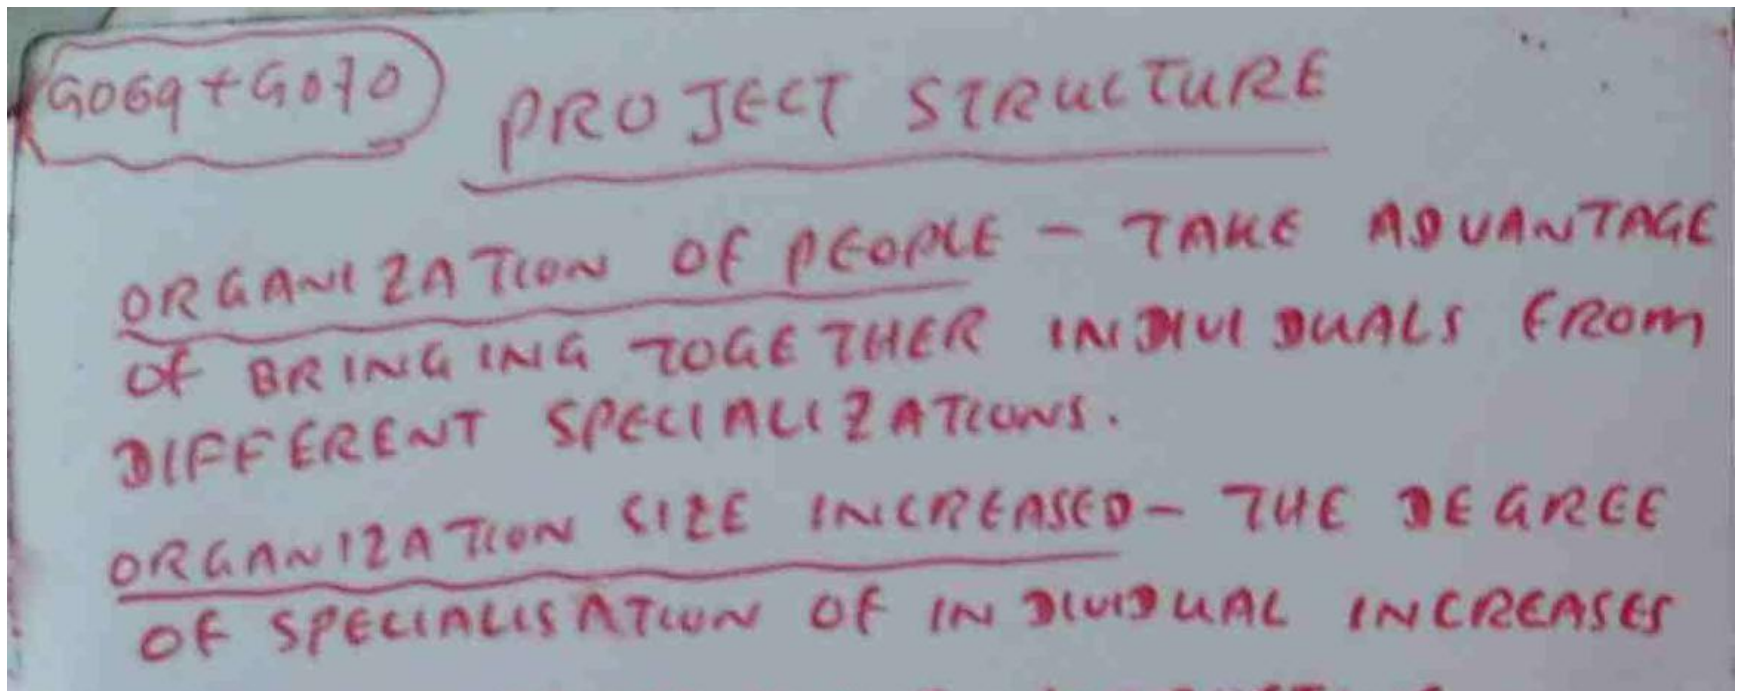 G069+G070
PROJECT STRUCTURE
ORGANIZATION OF PEOPLE - TAKE ADVANTAGE
OF BRINGING TOGETHER INDIVIDUALS FROM
DIFFERENT SPECIALIZATIONS.
ORGANIZATION SIZE INCREASED - THE DEGREE
OF SPECIALISATION OF INDIVIDUAL INCREASES